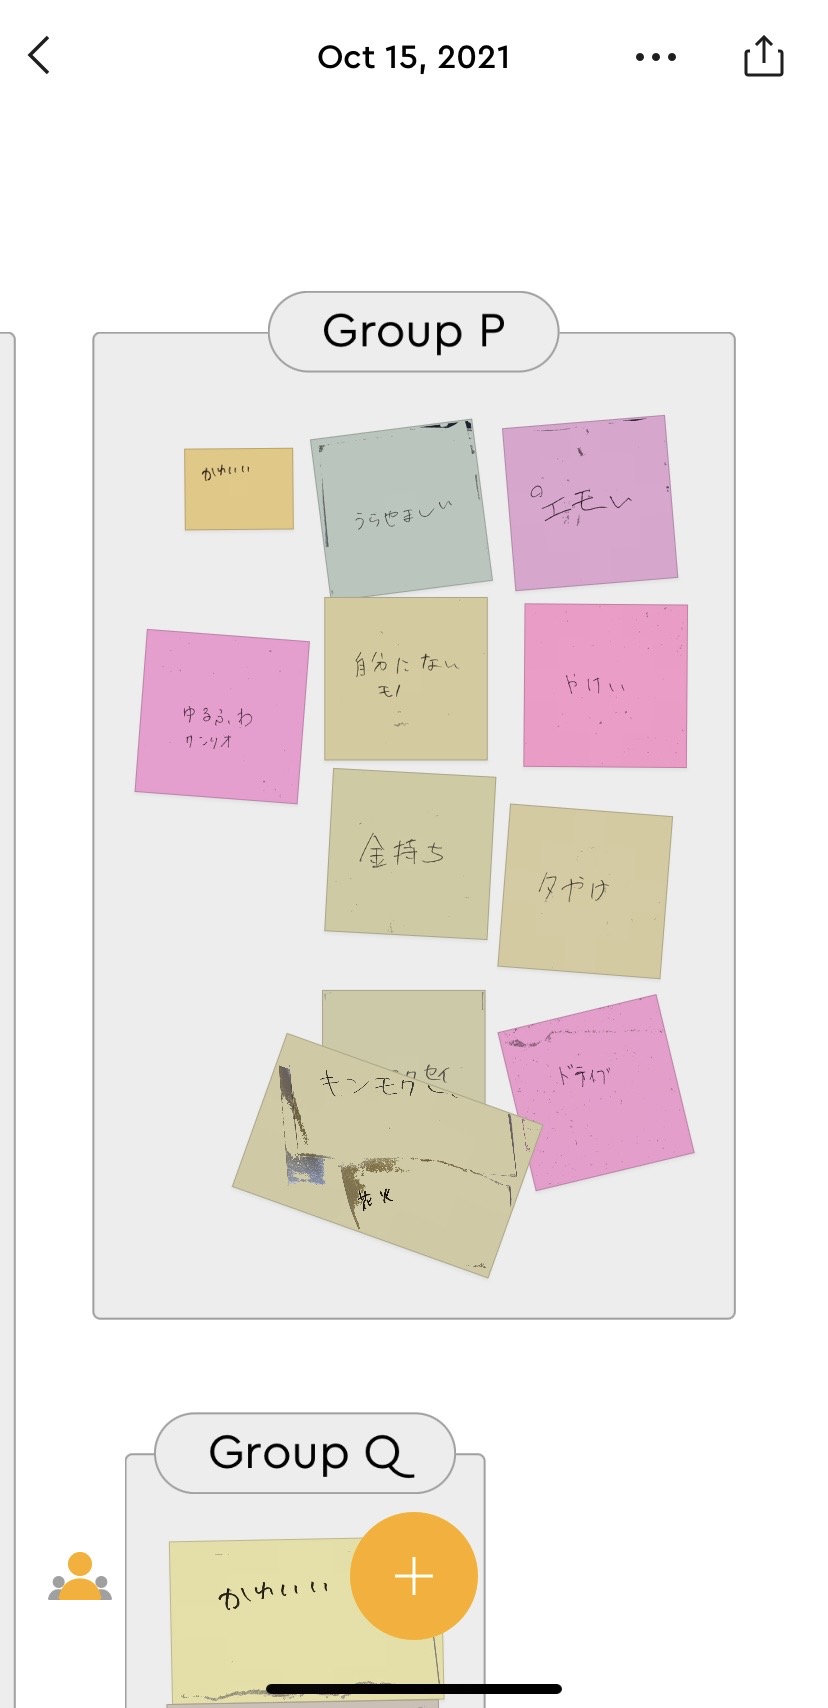 Oct 15, 2021
Group P
かわいい
うらやましい
エモい
ゆるふわ
自分にない
モノ
やけい
金持ち
夕やけ
キンモクセイ
ドライブ
花火
Group Q
かわいい